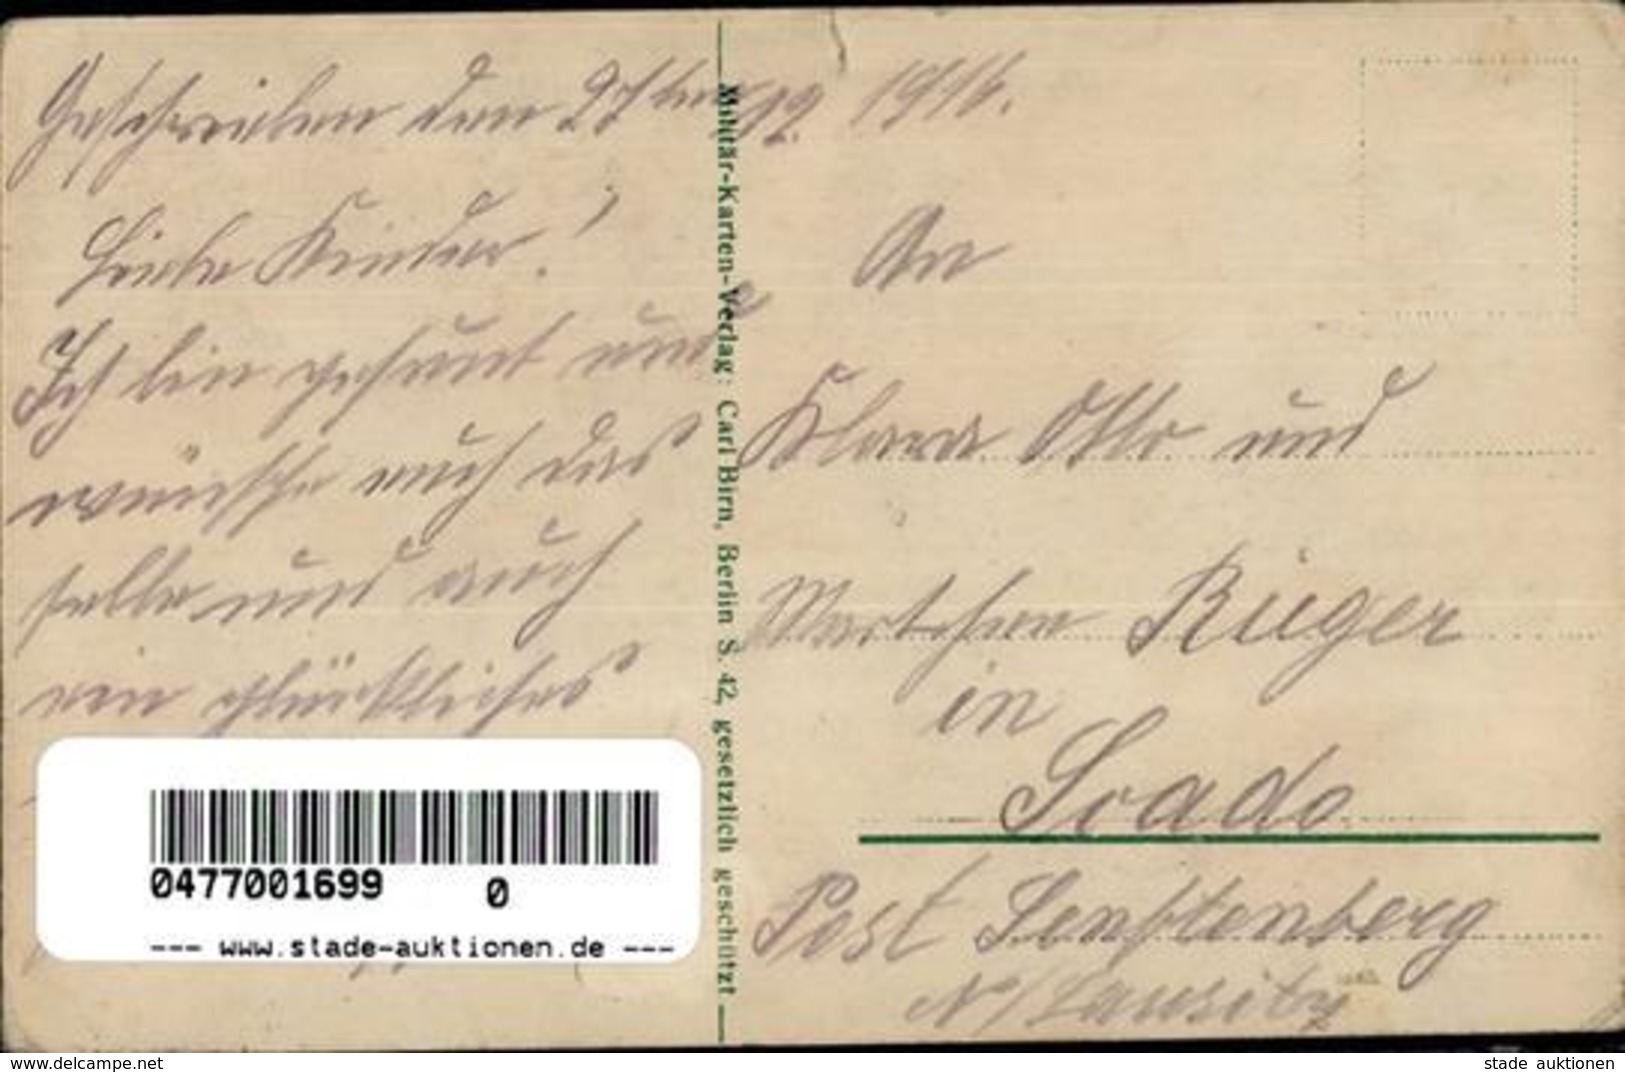 Geschrieben den 27ten 12. 1916.
Liebe Kinder!
Ich bin gesunt und
wünsche euch das
selbe und auch
ein glückliches
Militär-Karten-Verlag: Carl Birn, Berlin S. 42, gesetzlich geschützt
An
Klara Otto und
Martchen Rüger
in
Sado
Post Senftenberg
N/Lausitz
0477001699 0
--- www.stade-auktionen.de ---
www.delcampe.net
stade_auktionen